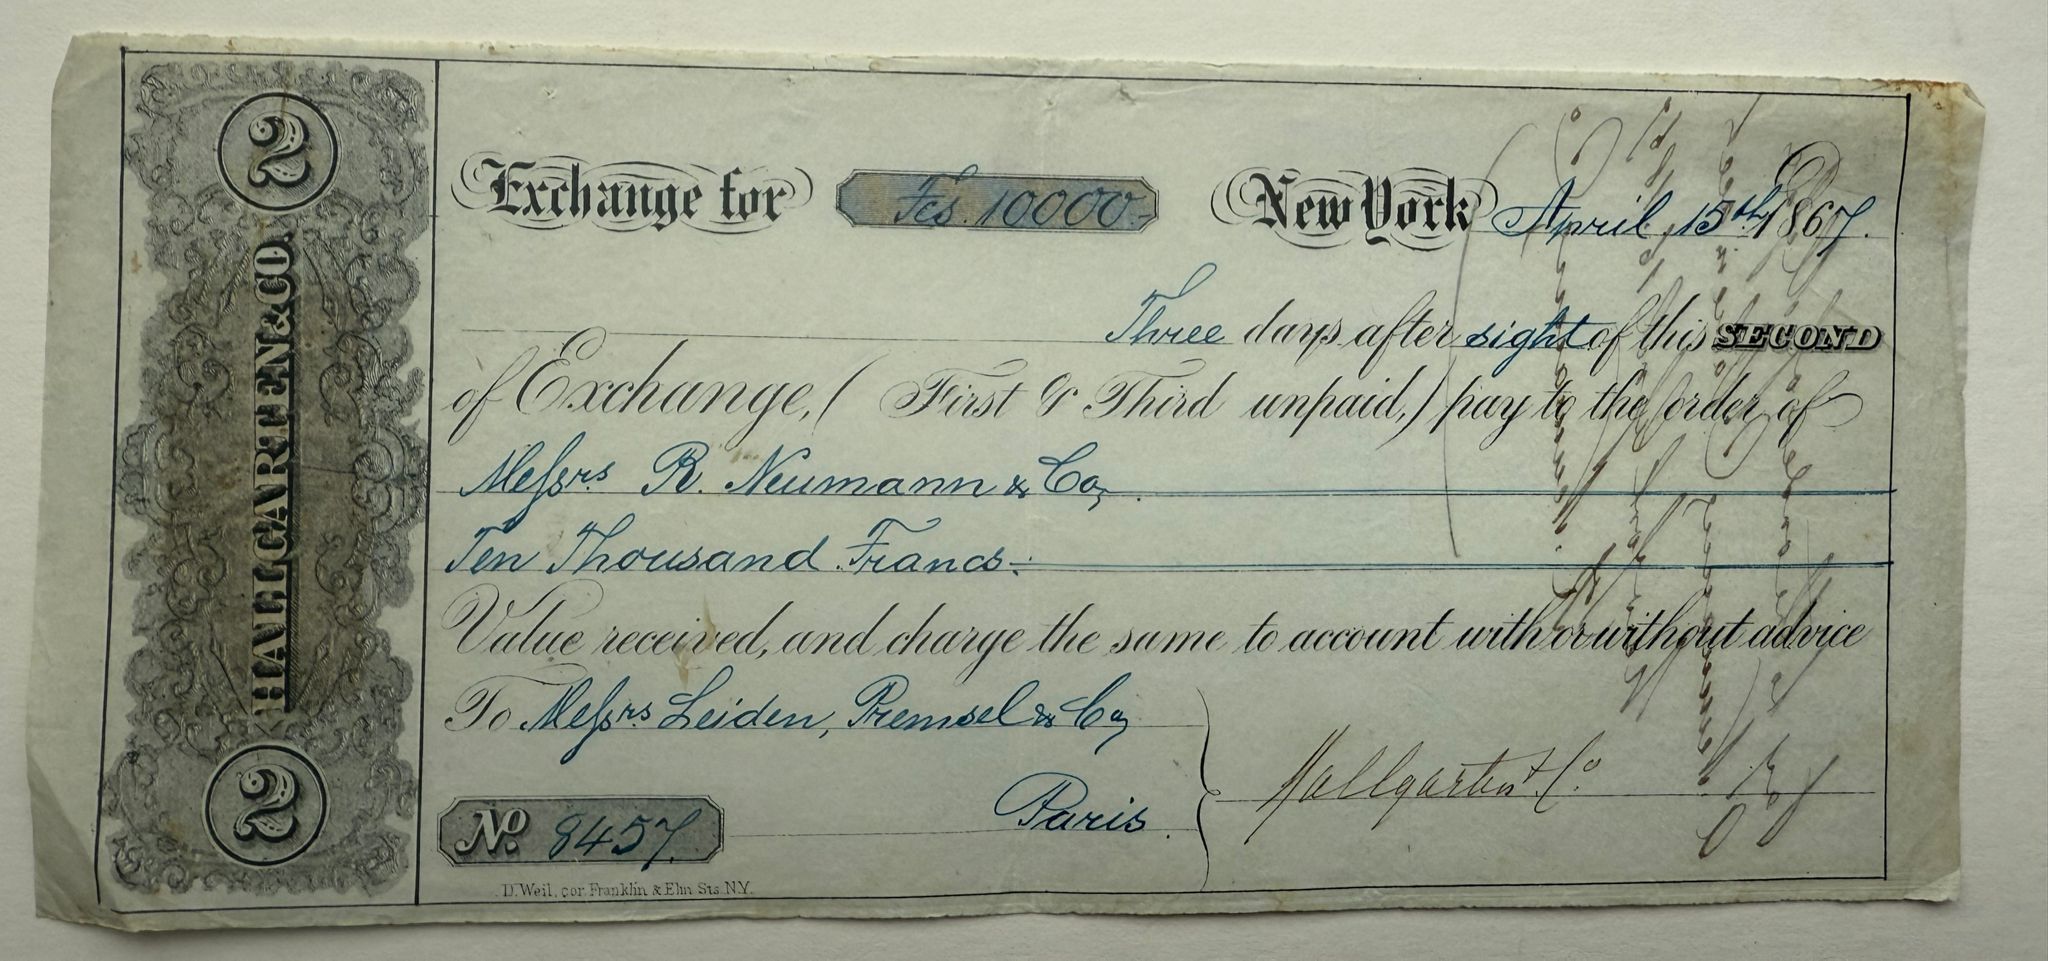 2
HALLGARTEN & CO.
2
Exchange for Fcs. 10000.- New York April 15th 1867.
Three days after sight of this SECOND
of Exchange, (First & Third unpaid,) pay to the order of
Messrs R. Neumann & Co,
Ten Thousand Francs.
Value received, and charge the same to account with or without advice
To Messrs Leiden, Premsel & Co,
Paris.
Hallgarten & Co
No. 8457.
D. Weil, cor. Franklin & Elm Sts. N.Y.